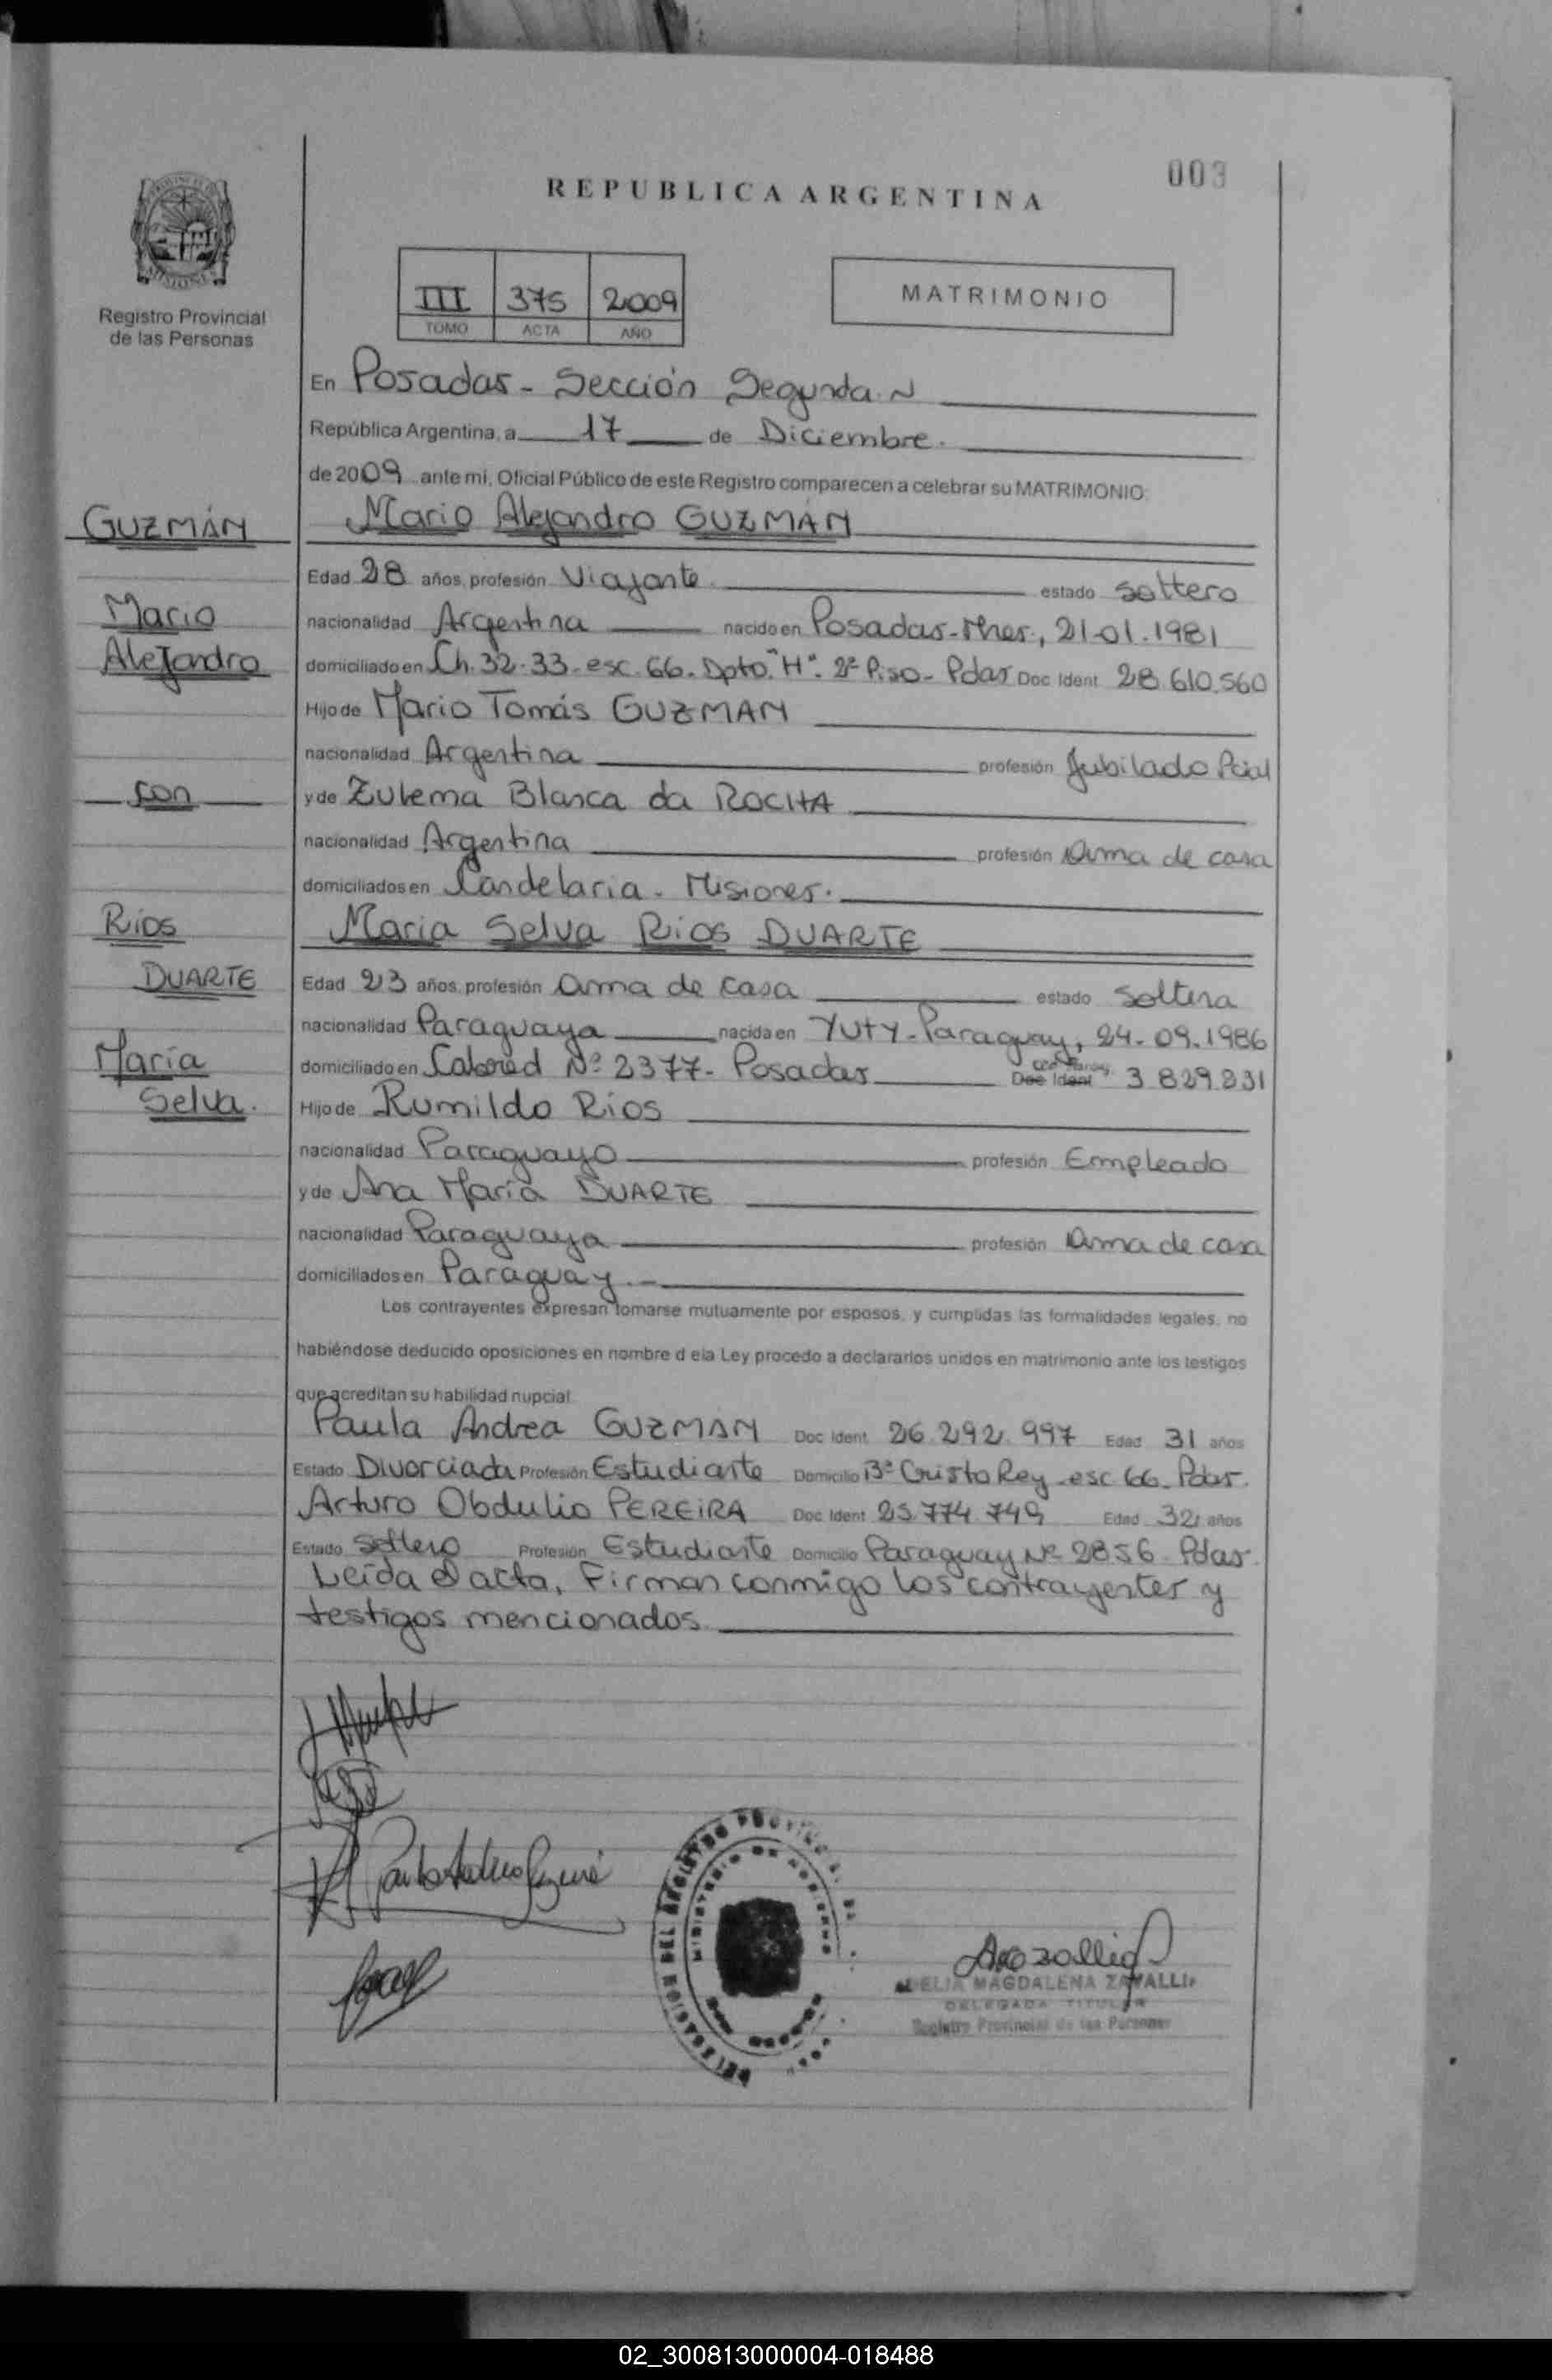 003
REPUBLICA ARGENTINA
Registro Provincial
de las Personas
III 375 2009
TOMO ACTA AÑO
MATRIMONIO
En Posadas - Sección Segunda.
República Argentina, a 17 de Diciembre.
de 2009 ante mi, Oficial Público de este Registro comparecen a celebrar su MATRIMONIO:
GUZMÁN
Mario
Alejandro
con
Ríos
DUARTE
María
Selva.
Mario Alejandro GUZMÁN
Edad 28 años, profesión Viajante. estado soltero
nacionalidad Argentina nacido en Posadas-Mnes., 21-01.1981
domiciliado en Ch. 32-33-esc. 66. Dpto. "H". 2º Piso - Pdas Doc Ident 28.610.560
Hijo de Mario Tomás GUZMAN
nacionalidad Argentina profesión Jubilado Pcial
y de Zulema Blanca da ROCHA
nacionalidad Argentina profesión Ama de casa
domiciliados en Candelaria - Misiones.
María Selva Ríos DUARTE
Edad 23 años, profesión ama de casa estado Soltera
nacionalidad Paraguaya nacida en YUTY-Paraguay, 24-09-1986
domiciliado en Nº 2377- Posadas Doc Ident 3.829.831
Hijo de Rumildo Ríos
nacionalidad Paraguayo profesión Empleado
y de Ana María DUARTE
nacionalidad Paraguaya profesión Ama de casa
domiciliados en Paraguay.-
Los contrayentes expresan tomarse mutuamente por esposos, y cumplidas las formalidades legales, no
habiéndose deducido oposiciones en nombre d ela Ley procedo a declararlos unidos en matrimonio ante los testigos
que acreditan su habilidad nupcial
Paula Andrea GUZMAN Doc Ident 26.292.997 Edad 31 años
Estado Divorciada Profesión Estudiante Domicilio Bº Cristo Rey-esc 66. Pdas.
Arturo Obdulio PEREIRA Doc Ident 25.774.749 Edad 32 años
Estado Soltero Profesión Estudiante Domicilio Paraguay Nº 2856 Pdas.
Leída el acta, Firman conmigo los contrayentes y
testigos mencionados
DELEGACION DEL REGISTRO
DELIA MAGDALENA ZAVALLI
DELEGADA TITULAR
Registro Provincial de las Personas
02_300813000004-018488